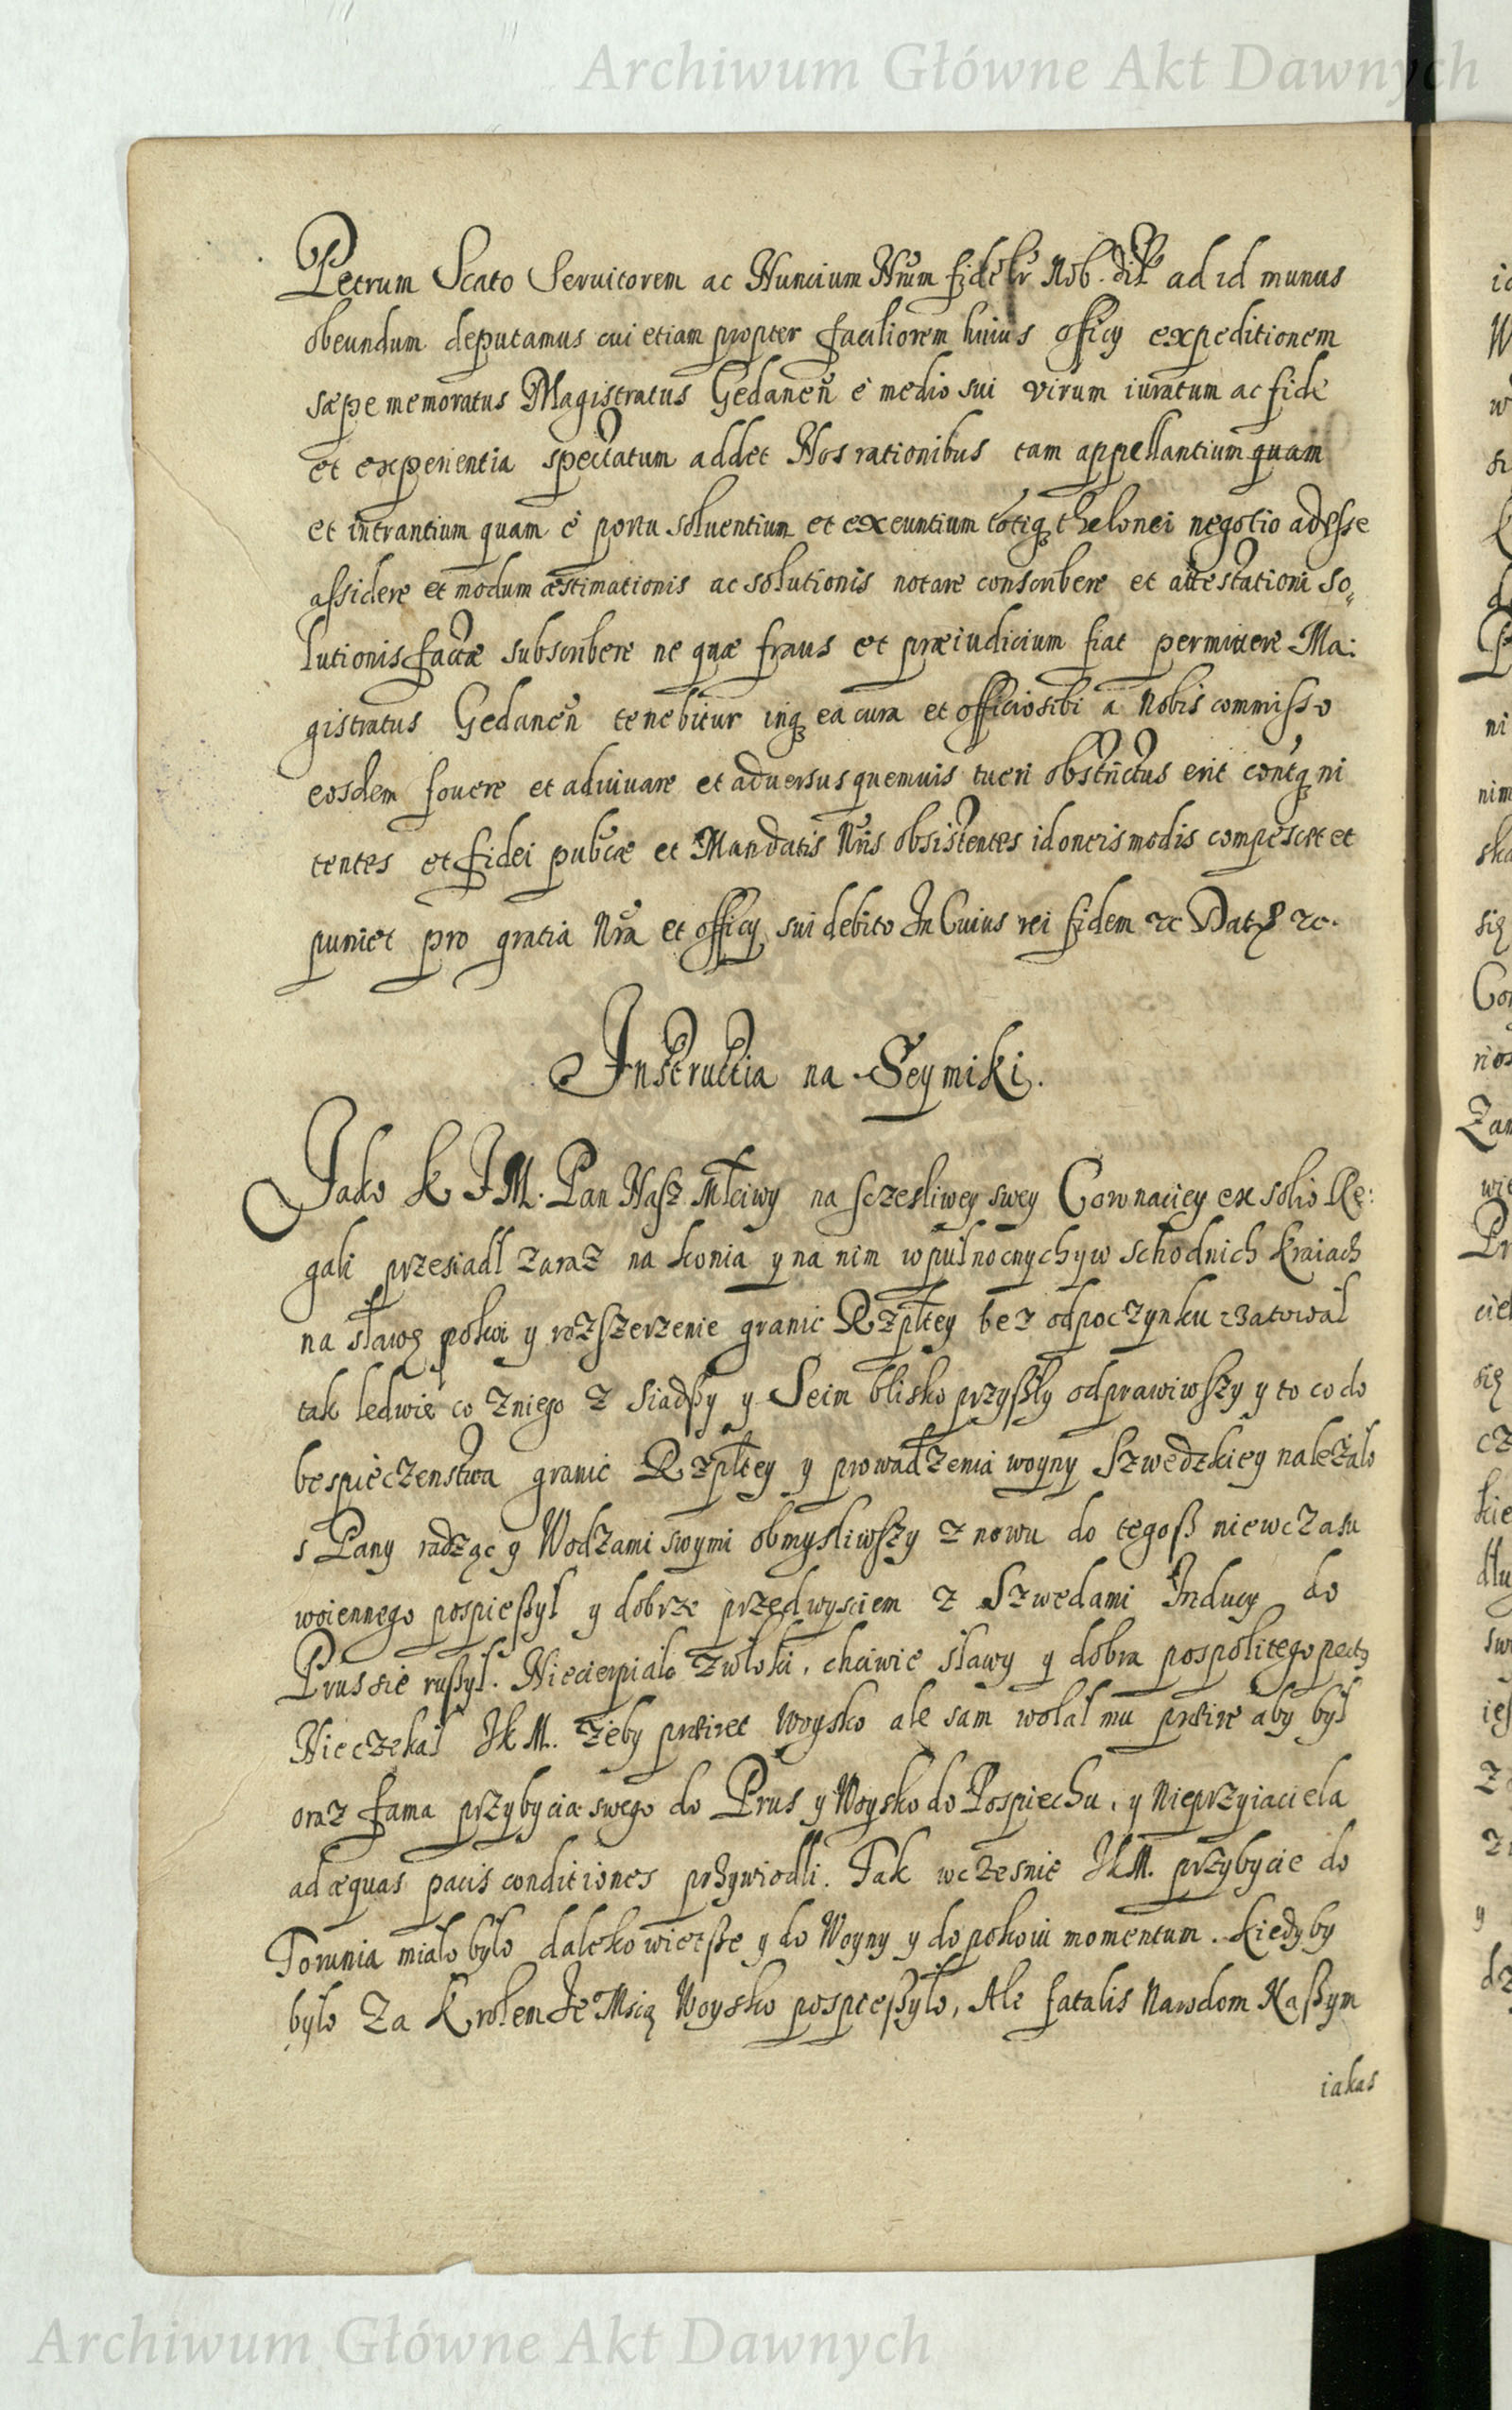 Archiwum Główne Akt Dawnych
Petrum Scato Servitorem ac Nuncium Nrum fidelr Nob. dik ad id munus
obeundum deputamus cui etiam propter faciliorem huius officy expeditionem
sæpe memoratus Magistratus Gedaneñ è medio sui virum iuratum ac fide
et experientia spectatum addet Hos rationibus tam appellantium quam
et intrantium quam è portu solventium et exeuntium totiq thelonei negotio adesse
assidere et modum æstimationis ac solutionis notare conscribere et attestationi so„
lutionis factæ subscribere ne quæ fraus et præiudicium fiat permittere Ma:
gistratus Gedaneñ tenebitur inq ea cura et officio sibi a Nobis commisso
eosdem fovere et adiuvare et adversus quemvis tueri obstrictus erit contq ni
tentes et fidei publcæ et Mandatis Nris obsistentes idoneis modis compescet et
puniet pro gratia Nra et officy sui debito In Cuius rei fidem etc Dat etc.
Instructia na Seymiki.
Jako K J M. Pan Nasz Młciwy na sczesliwey swey Cornaciey ex solio Re:
gali przesiadl zaraz na konia y na nim w pulnocnych y w schodnich kraiach
na sławę pokoi y rozszerzenie granic Rzpltey bez odpoczynku
tak ledwie co z niego z siadszy y Seim blisko przyszły odprawiwszy y to co do
bespieczenstwa granic Rzpltey y prowadzenia woyny Szwedzkiey należało
s Pany radzęc y Wodzami swymi obmysliwszy z nowu do tegoß niewczasu
woiennego pospieszył y dobrze przed wysciem z Szwedami Inducy do
Prussie ruszył. Niecierpialo zwłoki, chciwie sławy y dobra pospolitego pectq
Nieczekał JKM. zeby præiret Woysko ale sam wolał mu præire aby był
oraz fama przybycia swego do Prus y Woysko do Pospiechu, y Nieprzyiaciela
ad æquas pacis conditiones przywiodli. Tak wczesnie JKM. przybycie do
Torunia miało bylo daleko wietsze y do Woyny y do pokoiu momentum. kiedyby
było Za Krolem Je Mscią Woysko pospieszyło, Ale fatalis Narodom Naszym
iakas
Archiwum Główne Akt Dawnych